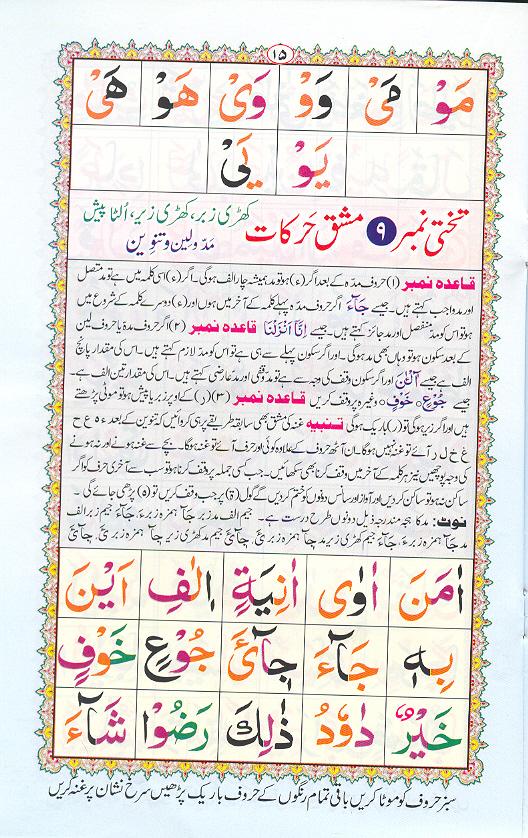 ۱۵
مَوْ مَیْ وَوْ وَیْ هَوْ هَیْ
یَوْ یَیْ
تختی نمبر ۹ مشق حَرکات کھڑی زبر، کھڑی زیر، اُلٹا پیش
مدّ ولین وتنوین
قاعدہ نمبر (۱) حروف مدّہ کے بعد اگر (ء) ہو تو مد ہمیشہ چار الف ہوگی۔ اگر (ء) اسی کلمہ میں ہے تو مد متصل
اور مد واجب کہتے ہیں۔ جیسے جَآءَ اگر حروف مدّہ پہلے کلمہ کے آخر میں ہوں اور (ء) دوسرے کلمہ کے شروع میں
ہو تو اس کو مد منفصل اور مد جائز کہتے ہیں۔ جیسے اِنَّاۤ اَنْزَلْنَا قاعدہ نمبر (۲) اگر حروف مدہ یا حروف لین
کے بعد سکون ہو تو وہاں بھی مد ہوگی۔ اور اگر سکون پہلے سے ہی ہے تو اس کو مد لازم کہتے ہیں۔ اس کی مقدار پانچ
الف ہے جیسے آٰلْـٰٔنَ اور اگر سکون وقف کی وجہ سے ہے تو مد وقفی اور مد عارضی کہتے ہیں۔ اس کی مقدار تین الف ہے۔
جیسے جُوْعٍ ○ خَوْفٍ ○ وغیرہ پر وقف کریں قاعدہ نمبر (۳) (ر) کے اوپر زبر یا پیش ہو تو موٹی پڑھتے
ہیں اور اگر زیر ہوگی تو (ر) باریک ہوگی تنبیہ غنہ کی مشق بھی سابقہ طریقے پر ہی کروائیں کہ تنوین کے بعد ء ہ ع ح
غ خ ل ر آئے تو غنہ نہیں ہوگا۔ ان آٹھ حروف کے علاوہ کوئی اور حرف آئے تو غنہ ہوگا۔ بچے سے غنہ ہونے اور نہ ہونے
کی وجہ پوچھیں نیز ہر کلمہ کے آخر میں وقف کرنا بھی سکھائیں۔ جب کسی جملہ پر وقف کرنا ہو تو سب سے آخری حرف کو اگر
ساکن نہ ہو تو ساکن کر دیں اور آواز اور سانس دونوں کو ختم کر دیں گے گول (ۃ) پر جب وقف کریں تو (ہ) پڑھی جائے گی۔
نوٹ: مد کا ہجہ مندرجہ ذیل دونوں طرح درست ہے۔ جیم الف مد زبر جَآ ہمزہ زبر ءَ، جَآءَ جیم زبر الف
مد جَآ ہمزہ زبر ءَ، جَآءَ
اٰمَنَ اُوٰی اٰنِیَةٍ اٖلٰفِ اَیْنَ
بِهٖ جَآءَ جِآیْءَ جُوْعٍ خَوْفٍ
خَیْرٌ دَاوٗدُ ذٰلِكَ رَضُوْا شَآءَ
سبز حروف کو موٹا کریں باقی تمام رنگوں کے حروف باریک پڑھیں سرخ نشان پر غنہ کریں